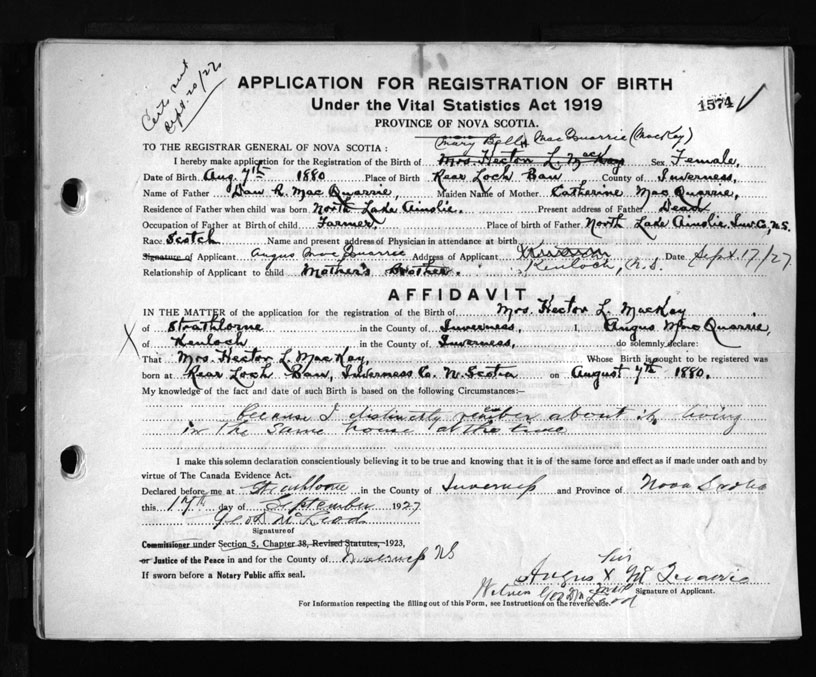 Certs sent
Sept. 20/27
APPLICATION FOR REGISTRATION OF BIRTH
1574
Under the Vital Statistics Act 1919
PROVINCE OF NOVA SCOTIA.
Mary Bell MacQuarrie (MacKay)
TO THE REGISTRAR GENERAL OF NOVA SCOTIA:
I hereby make application for the Registration of the Birth of Mrs. Hector L. MacKay Sex Female,
Date of Birth Aug. 7th 1880 Place of Birth Rear Loch Ban County of Inverness,
Name of Father Dan R. MacQuarrie, Maiden Name of Mother Catherine MacQuarrie,
Residence of Father when child was born North Lake Ainslie. Present address of Father Dead
Occupation of Father at Birth of child Farmer. Place of birth of Father North Lake Ainslie Inv. Co, N.S.
Race Scotch Name and present address of Physician in attendance at birth
Signature of Applicant Angus MacQuarrie Address of Applicant Kenloch, N.S. Date Sept. 17/27
Relationship of Applicant to child Mother's Brother.
AFFIDAVIT
IN THE MATTER of the application for the registration of the Birth of Mrs. Hector L. MacKay
X of Strathlorne in the County of Inverness, I, Angus MacQuarrie,
of Kenloch in the County of Inverness, do solemnly declare:
That Mrs. Hector L. MacKay, Whose Birth is sought to be registered was
born at Rear Loch Ban, Inverness Co. N. Scotia on August 7th 1880.
My knowledge of the fact and date of such Birth is based on the following Circumstances:—
Because I distinctly remember about it, living
in the same house at the time
I make this solemn declaration conscientiously believing it to be true and knowing that it is of the same force and effect as if made under oath and by
virtue of The Canada Evidence Act.
Declared before me at Strathlorne in the County of Inverness and Province of Nova Scotia
this 17th day of September 1927
Geo. D. McLeod
Signature of
Commissioner under Section 5, Chapter 38, Revised Statutes, 1923,
or Justice of the Peace in and for the County of Inverness NS
If sworn before a Notary Public affix seal.
his
Angus X McQuarrie
mark
Signature of Applicant.
Witness Geo D McLeod
For Information respecting the filling out of this Form, see Instructions on the reverse side.